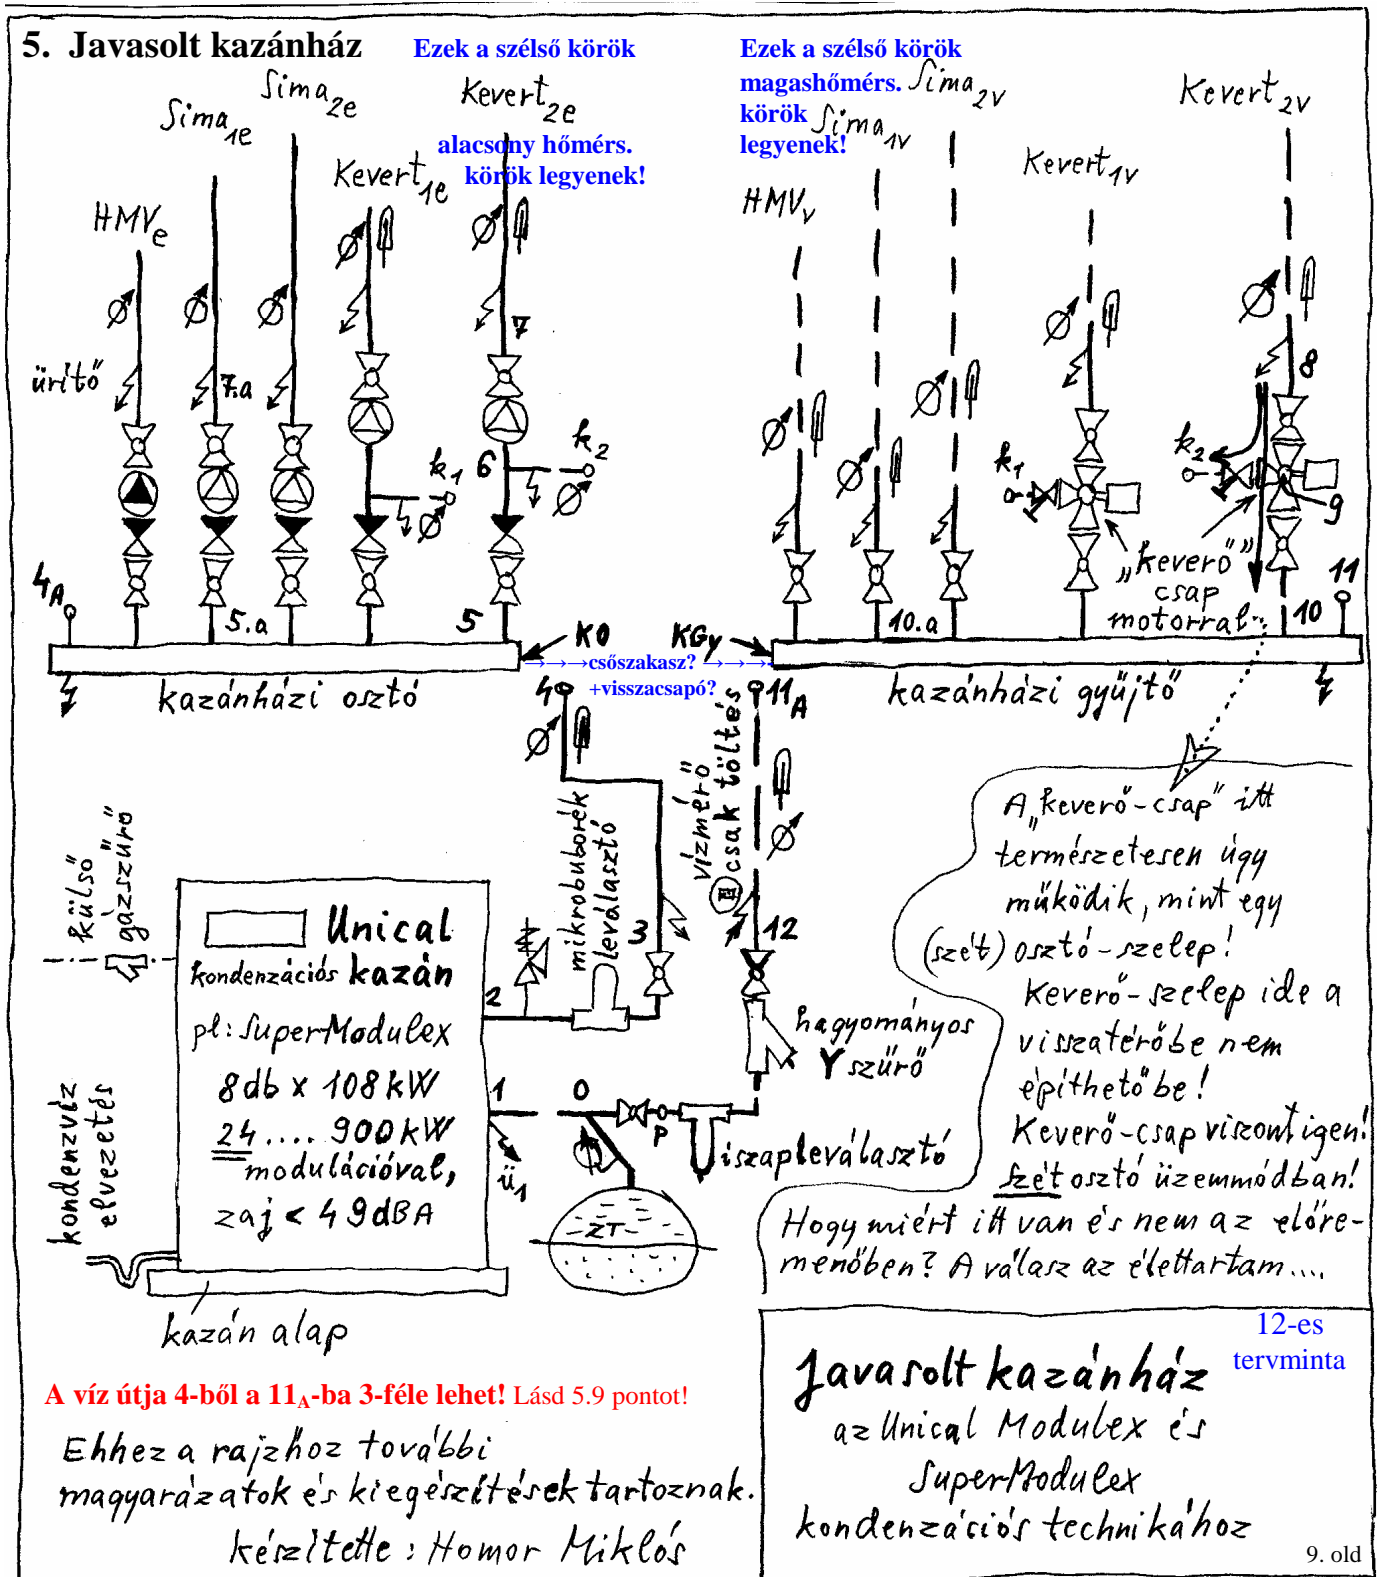 5. Javasolt kazánház
Ezek a szélső körök
alacsony hőmérs.
körök legyenek!
Ezek a szélső körök
magashőmérs.
körök
legyenek!
HMVe
Sima1e
Sima2e
Kevert1e
Kevert2e
HMVv
Sima1v
Sima2v
Kevert1v
Kevert2v
ürítő
7.a
7
8
k1
6
k2
k1
k2
9
„keverő”
csap
motorral
4A
5.a
5
KO
KGy
10.a
10
11
→→→csőszakasz? →→→
+visszacsapó?
kazánházi osztó
4
11A
kazánházi gyűjtő
mikrobuborék
leválasztó
vízmérő
csak töltés
külső
gázszűrő
3
12
Unical
kondenzációs kazán
pl: SuperModulex
8db x 108kW
24.... 900kW
modulációval,
zaj < 49dBA
2
1
0
P
ü1
ZT
hagyományos
Y szűrő
iszapleválasztó
kondenzvíz
elvezetés
kazán alap
A „keverő-csap” itt
természetesen úgy
működik, mint egy
(szét) osztó-szelep!
Keverő-szelep ide a
visszatérőbe nem
építhető be!
Keverő-csap viszont igen!
szét osztó üzemmódban!
Hogy miért itt van és nem az előre-
menőben? A válasz az élettartam....
A víz útja 4-ből a 11A-ba 3-féle lehet! Lásd 5.9 pontot!
Ehhez a rajzhoz további
magyarázatok és kiegészítések tartoznak.
készítette: Homor Miklós
12-es
tervminta
Javasolt kazánház
az Unical Modulex és
SuperModulex
kondenzációs technikához
9. old